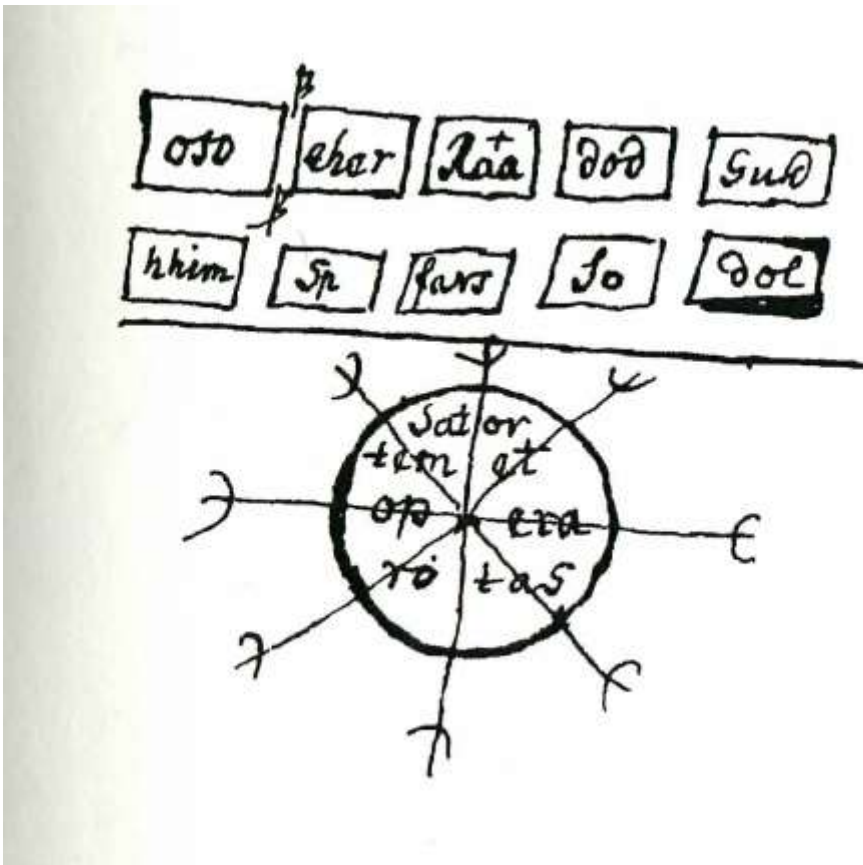 oso eher Raa dod Gud
hhim Sp fars So dol
Sator
tem et
op era
ro tas